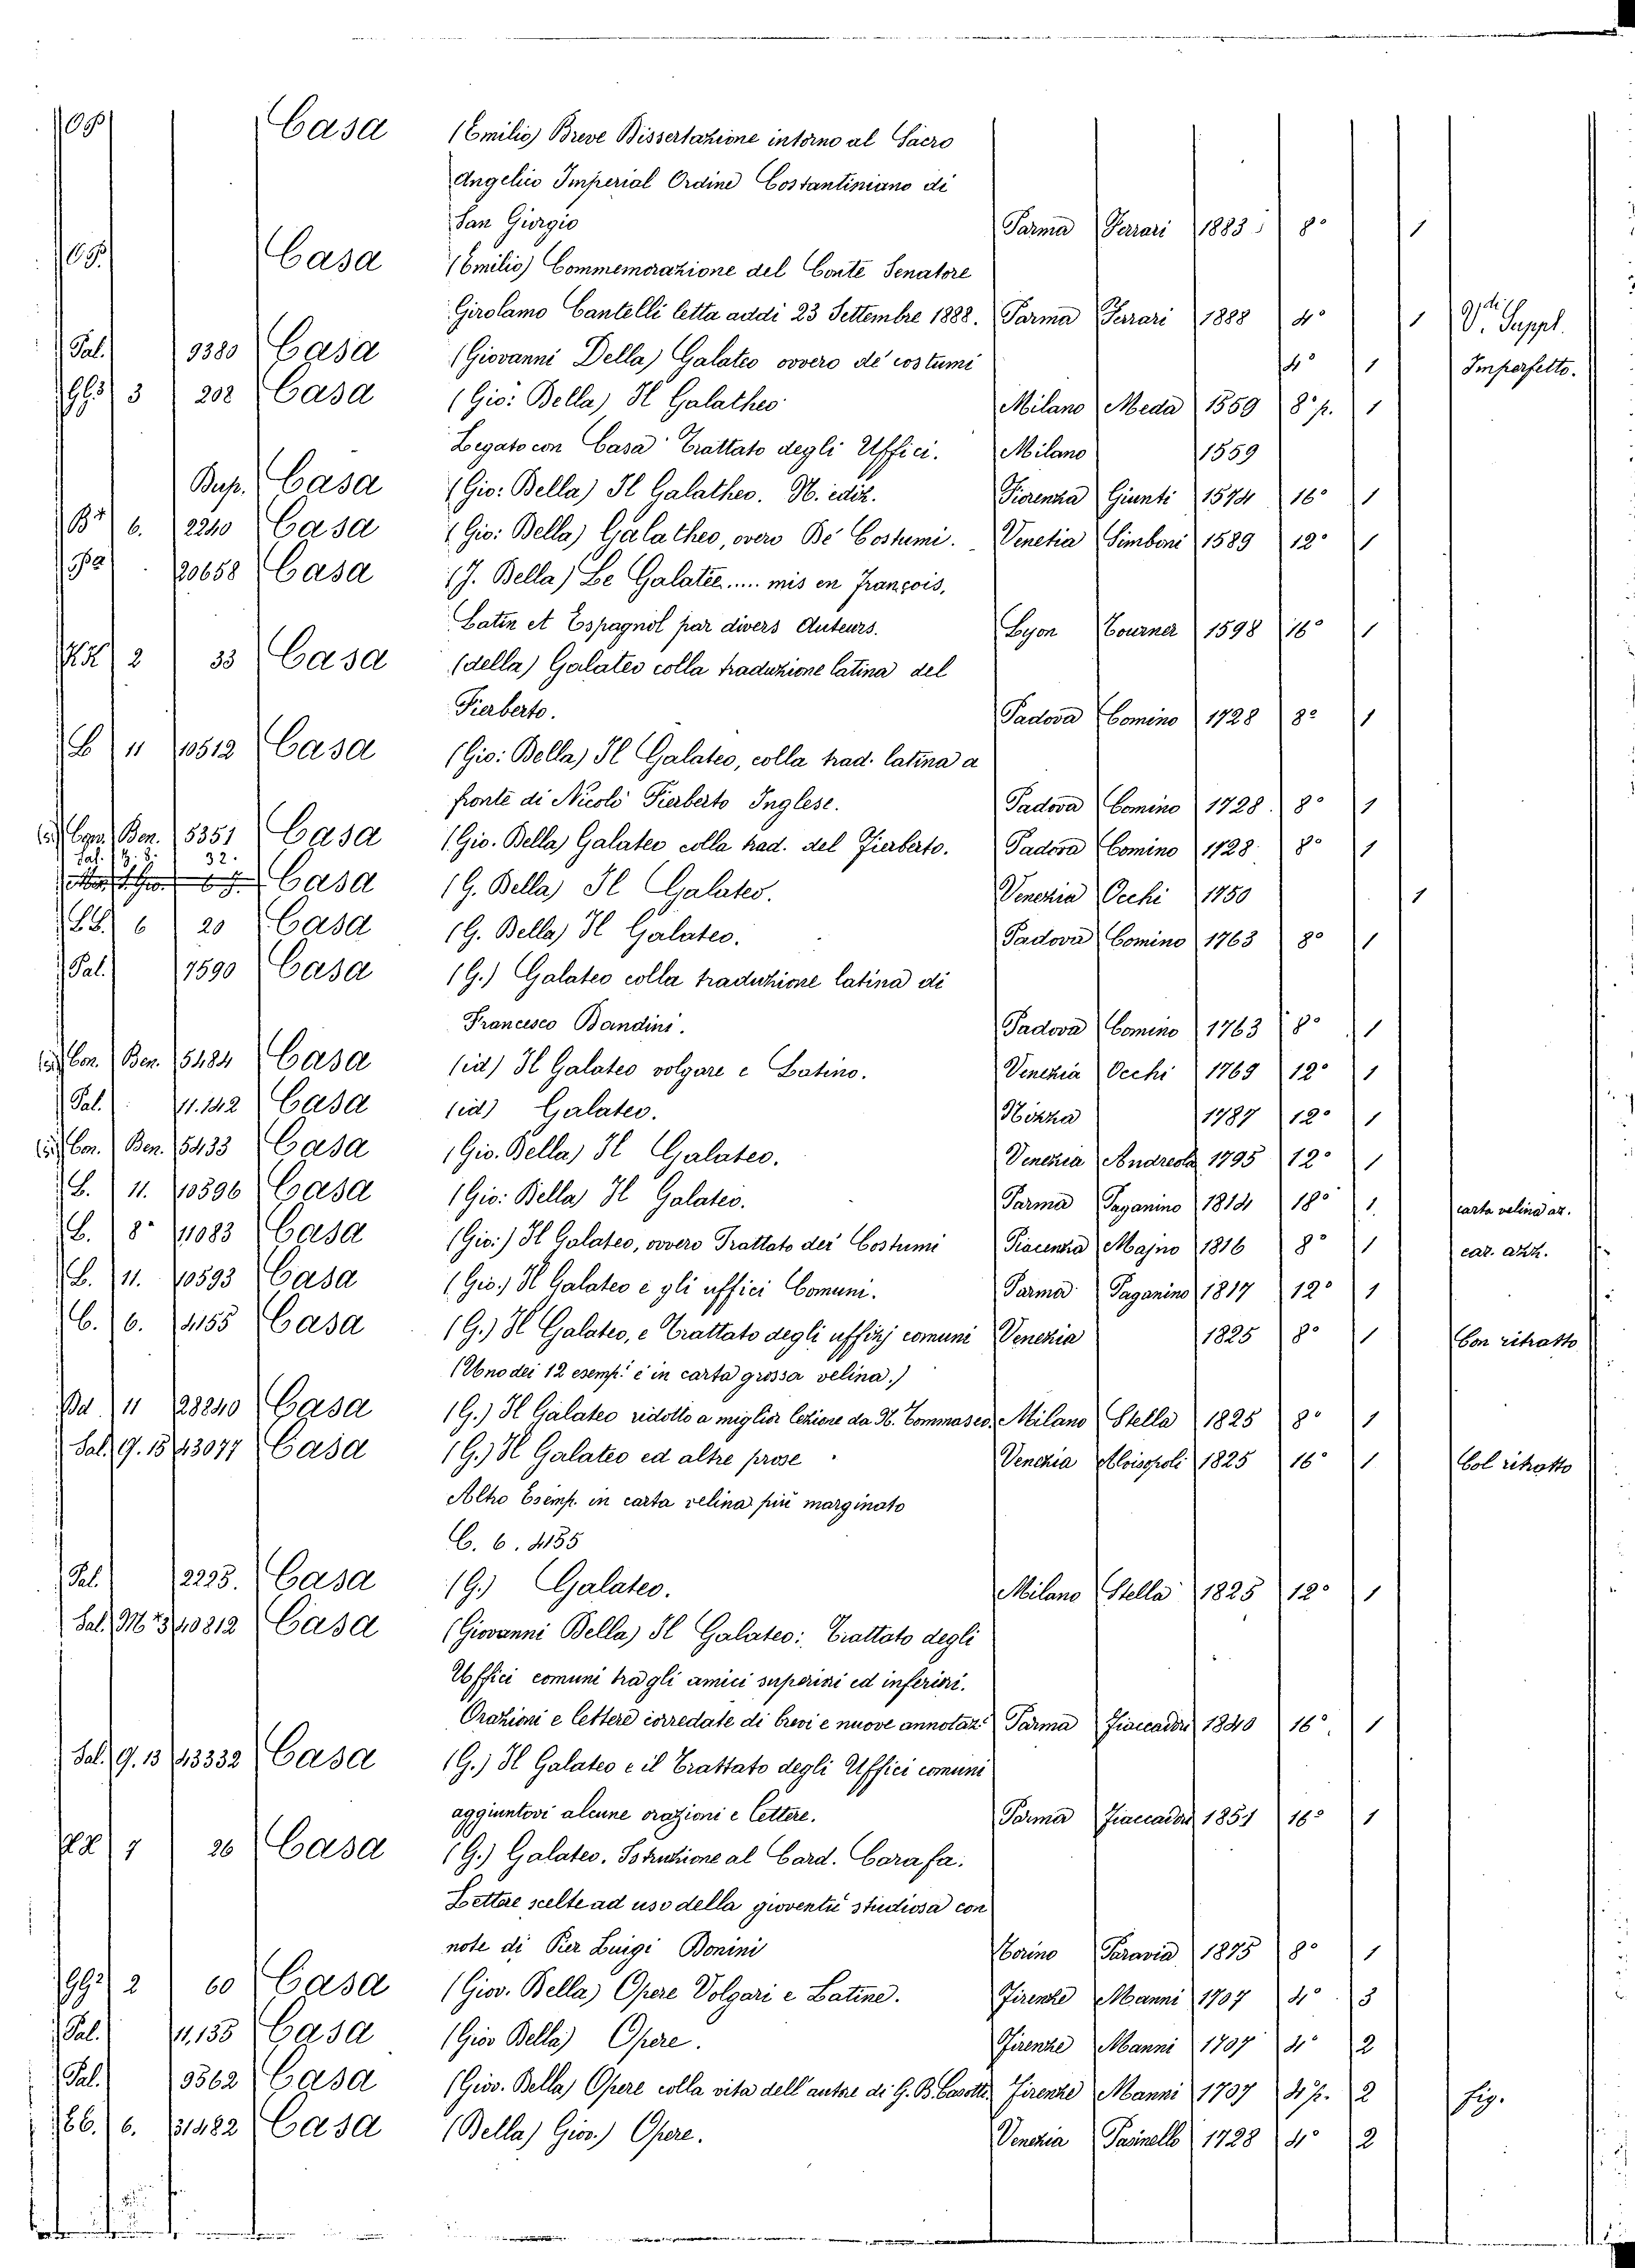 Casa (Emilio) Breve Dissertazione intorno al Sacro
Angelico Imperial Ordine Costantiniano di
San Giorgio Parma Ferrari 1883 8° 1
Casa (Emilio) Commemorazione del Conte Senatore
Girolamo Cantelli letta addi 23 Settembre 1888. Parma Ferrari 1888 4° 1 V.di Suppl.
Pal. 9380 Casa (Giovanni Della) Galateo ovvero de' costumi 4° 1 Imperfetto.
3 202 Casa (Gio: Della) Il Galatheo Milano Meda 1559 8° p. 1
Legato con Casa Trattato degli Uffici. Milano 1559
Dup. Casa (Gio: Della) Il Galatheo. N. ediz. Fiorenza Giunti 1574 16° 1
6. 2240 Casa (Gio: Della) Galatheo, overo De' Costumi. Venetia Simboni 1589 12° 1
20658 Casa (J. Della) Le Galatée..... mis en François,
Latin et Espagnol par divers Auteurs. Lyon Tournes 1598 16° 1
2 33 Casa (della) Galateo colla traduzione latina del
Fierberto. Padova Comino 1728 8° 1
11 10512 Casa (Gio: Della) Il Galateo, colla trad. latina a
fronte di Nicolò Fierberto Inglese. Padova Comino 1728. 8° 1
Ben. 5351 Casa (Gio. Della) Galateo colla trad. del Fierberto. Padova Comino 1728 8° 1
Pal. 32.
Casa (G. Della) Il Galateo. Venezia Occhi 1750 1
6 20 Casa (G. Della) Il Galateo. Padova Comino 1763 8° 1
Pal. 7590 Casa (G.) Galateo colla traduzione latina di
Francesco Bandini. Padova Comino 1763 8° 1
Con. Ben. 5484 Casa (id) Il Galateo volgare e Latino. Venezia Occhi 1769 12° 1
Pal. 11.142 Casa (id) Galateo. Nizza 1787 12° 1
Con. Ben. 5433 Casa (Gio. Della) Il Galateo. Venezia Andreola 1795 12° 1
11. 10596 Casa (Gio: Della) Il Galateo. Parma Paganino 1814 18° 1. carta velina az.
8° 11083 Casa (Gio:) Il Galateo, ovvero Trattato dei Costumi Piacenza Majno 1816 8° 1 car. azz.
11. 10593 Casa (Gio.) Il Galateo e gli uffici Comuni. Parma Paganino 1817 12° 1
C. 6. 4155 Casa (G.) Il Galateo, e Trattato degli uffizj comuni Venezia 1825 8° 1 Con ritratto
(Uno dei 12 esemp. è in carta grossa velina.)
11 28240 Casa (G.) Il Galateo ridotto a miglior lezione da N. Tommaseo. Milano Stella 1825 8° 1
Sal. Q. 15 43077 Casa (G.) Il Galateo ed altre prose Venezia Alvisopoli 1825 16° 1 Col ritratto
Altro Esemp. in carta velina più marginato
C. 6. 4155
Pal. 2225. Casa (G.) Galateo. Milano Stella 1825 12° 1
Sal. 40812 Casa (Giovanni Della) Il Galateo: Trattato degli
Uffici comuni tra gli amici superiori ed inferiori.
Orazioni e lettere corredate di brevi e nuove annotaz. Parma Fiaccadori 1840 16°. 1
Sal. Q. 13 43332 Casa (G.) Il Galateo e il Trattato degli Uffici comuni
aggiuntovi alcune orazioni e lettere. Parma Fiaccadori 1851 16° 1
7 26 Casa (G.) Galateo. Istruzione al Card. Carafa.
Lettere scelte ad uso della gioventù studiosa con
note di Pier Luigi Donini Torino Paravia 1875 8° 1
2 60 Casa (Giov. Della) Opere Volgari e Latine. Firenze Manni 1707 4° 3
Pal. 11,135 Casa (Giov Della) Opere. Firenze Manni 1707 4° 2
Pal. 9562 Casa (Giov. Della) Opere colla vita dell'autore di G. B. Casotti Firenze Manni 1707 4° p. 2 fig.
6. 31482 Casa (Della) Giov.) Opere. Venezia Pasinello 1728 4° 2